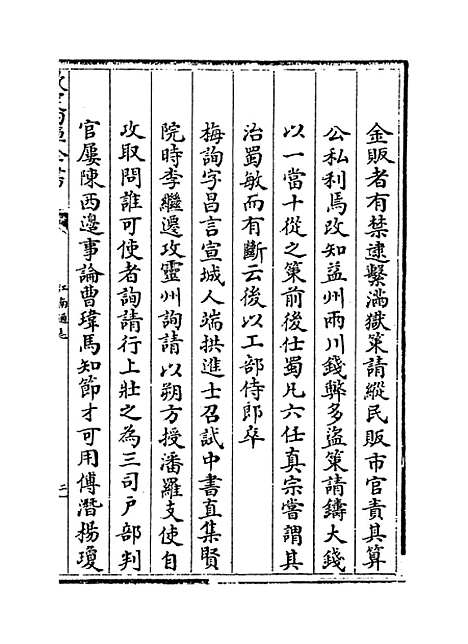 金販者有禁逮繫滿獄策請縱民販市官責其算
公私利焉改知益州兩川錢弊多盜策請鑄大錢
以一當十從之策前後仕蜀凡六任真宗嘗謂其
治蜀敏而有斷云後以工部侍郎卒
梅詢字昌言宣城人端拱進士召試中書直集賢
院時李繼遷攻靈州詢請以朔方授潘羅支使自
攻取問誰可使者詢請行上壯之為三司户部判
官屢陳西邊事論曹瑋馬知節才可用傅潛楊瓊
江南通志